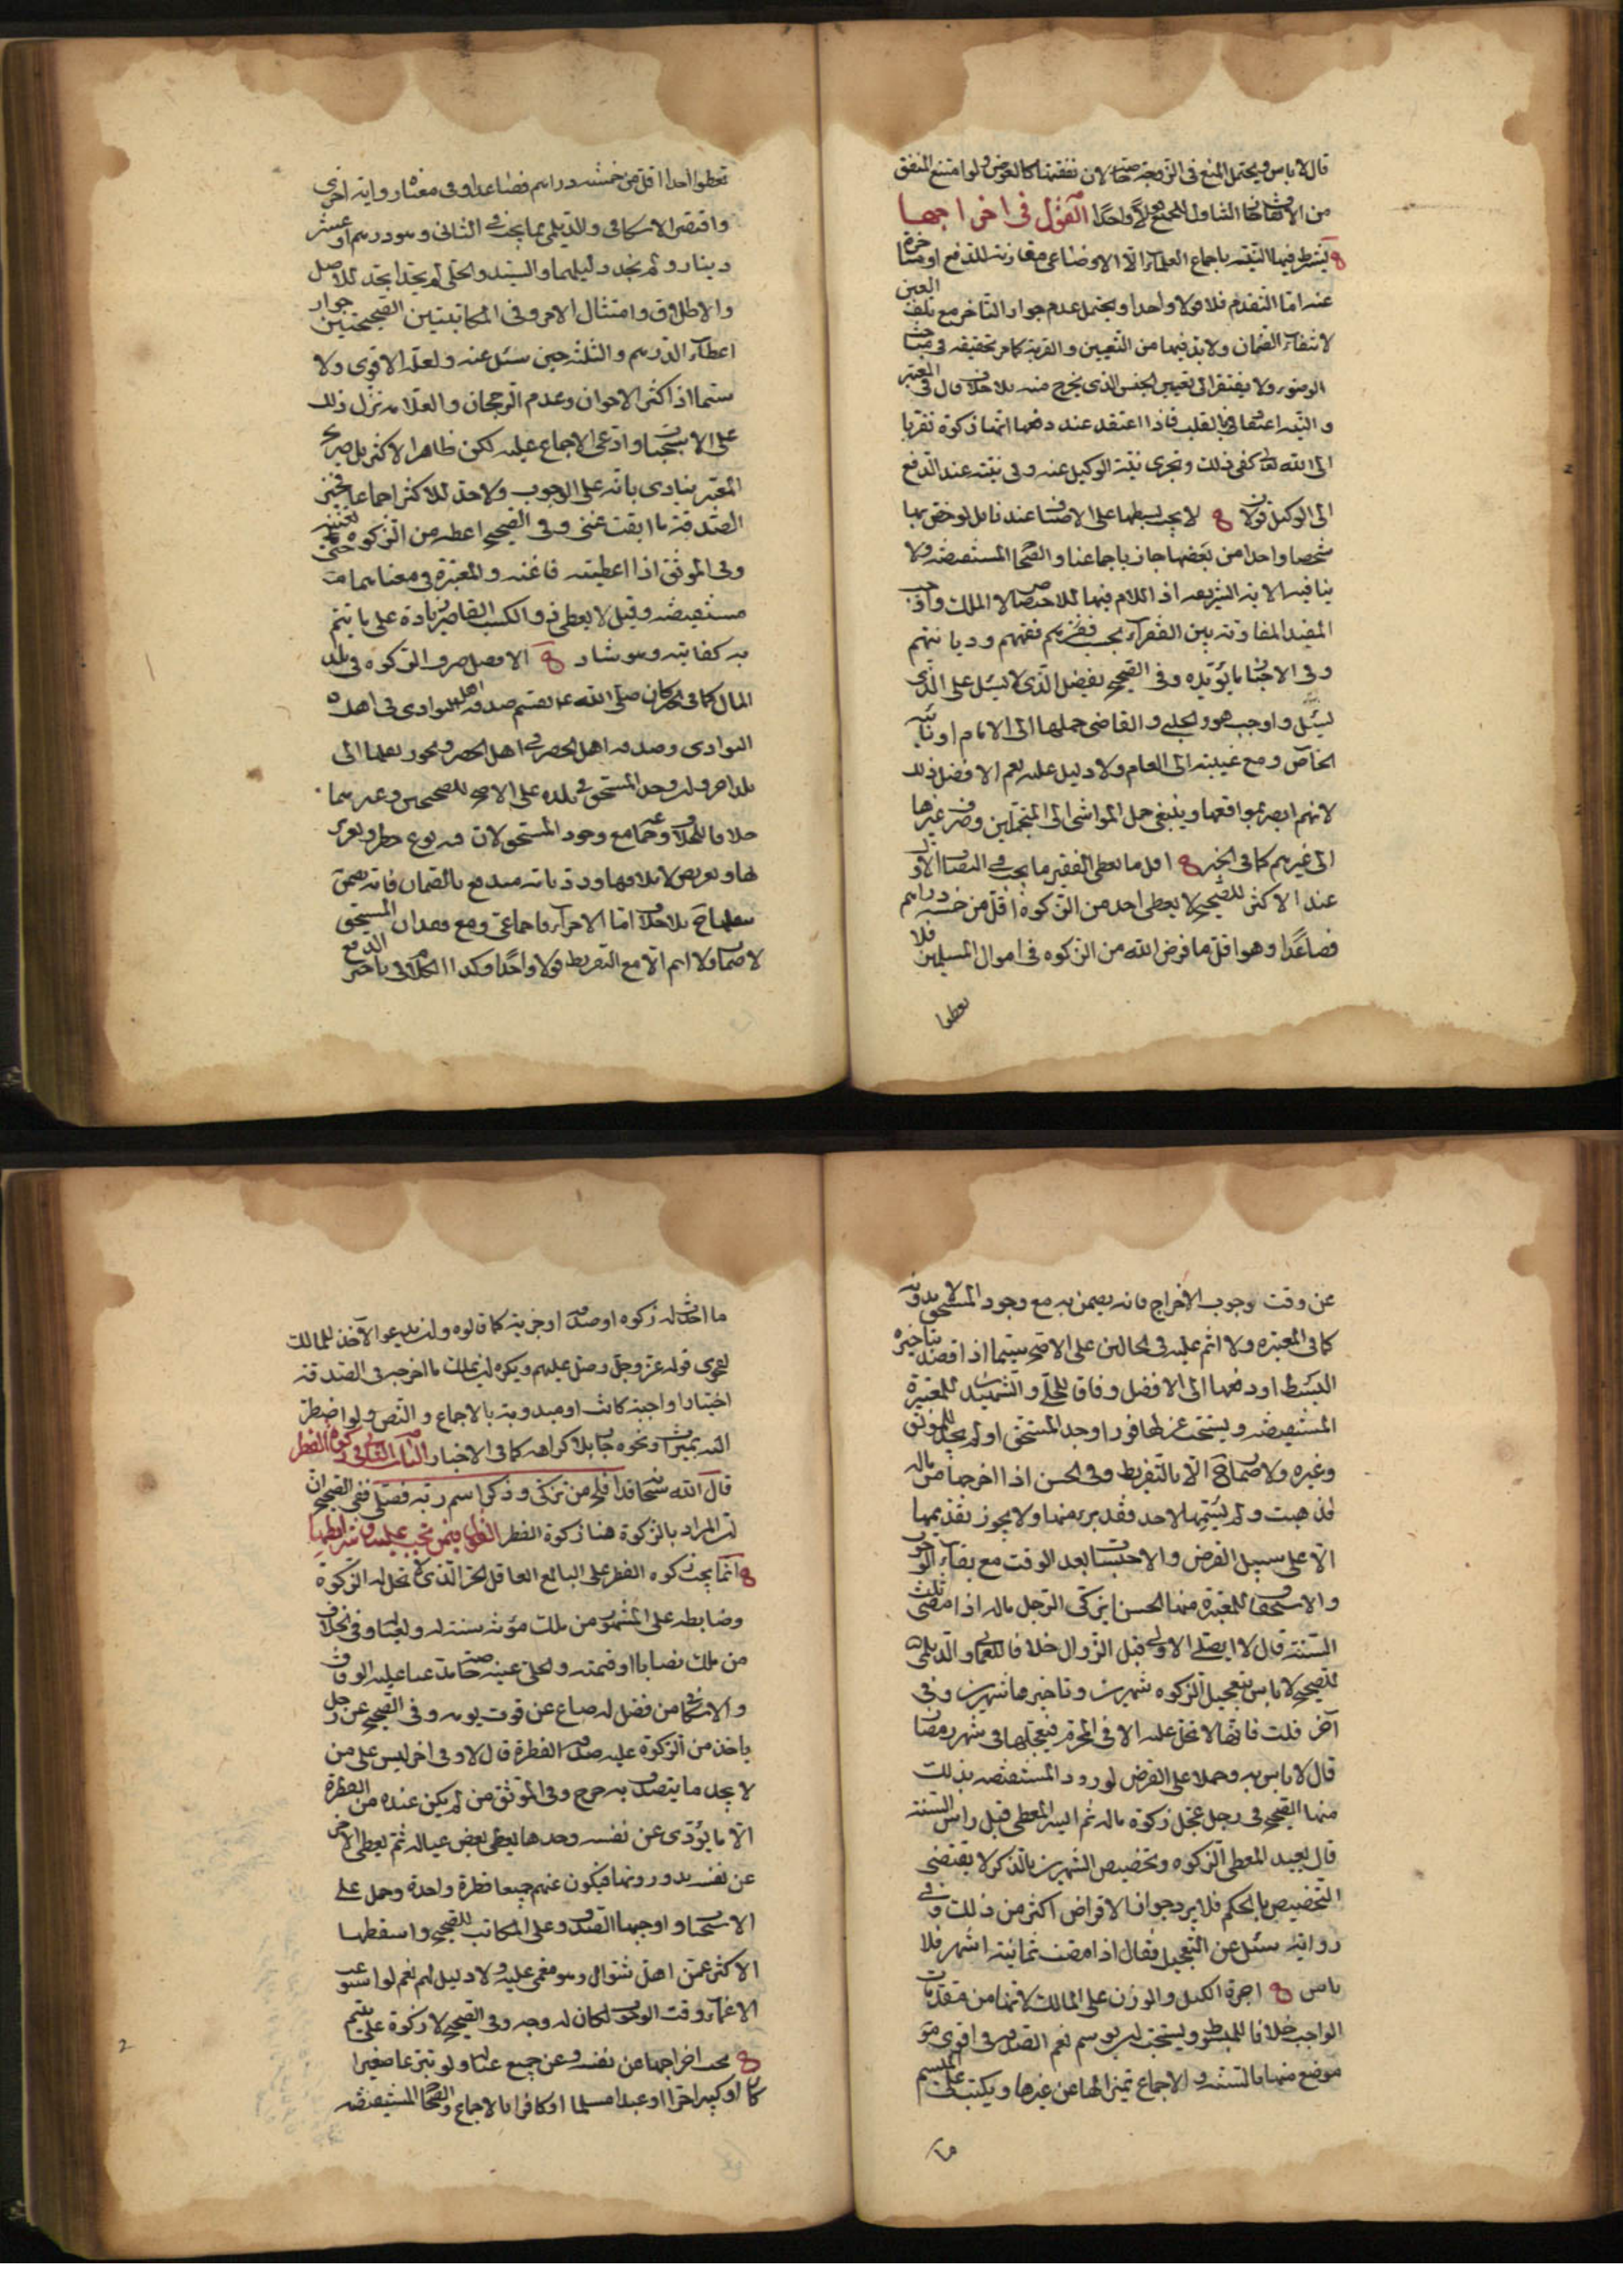 قال لا باس ويحتمل المنع فى الزوجة خاصة لان نفقتها كالعوض ولو امتنع المنفق
من الانفاق جاز التناول للجميع قولا واحدا القول فى اخراجها
يشترط فيها النية باجماع العلماء الا الاوزاعى مقارنة للدفع او متاخرة
عنه اما التقدم فلا قولا واحدا ويحتمل عدم جواز التاخر مع تلف العين
لانتفاء الضمان ولا بد فيها من التعيين والقربة كما مر تحقيقه فى مباحث
الوضوء ولا يفتقر الى تعيين الجنس الذى يخرج منه بلا خلاف قال فى المعتبر
والنية اعتقاد بالقلب فاذا اعتقد عند دفعها انها زكوة تقربا
الى الله تعالى كفى ذلك وتجزى نية الوكيل عنه وفى نيته عند الدفع
الى الوكيل قولان لا يجب بسطها على الاصناف عندنا بل لو خص بها
شخصا واحدا من بعضها جاز باجماعنا والصحاح المستفيضه ولا
ينافيه الاية الشريفه اذ اللام فيها للاختصاص لا الملك واوجب
المفيد المفاوتة بين الفقراء بحسب فقرهم وفقههم وديانتهم
وفى الاخبار ما يؤيده وفى الصحيح يفضل الذى لا يسئل على الذى
يسئل واوجب هو والحلبي والقاضى حملها الى الامام او نائبه
الخاص ومع غيبته الى العام ولا دليل عليه نعم الافضل ذلك
لانهم ابصر بمواقعها وينبغى حمل المواشى الى المتجملين وصرف غيرها
الى غيرهم كما فى الخبر اقل ما يعطى الفقير ما يجب فى النصاب الاول
عند الاكثر للصحيح لا يعطى احد من الزكوة اقل من خمسة دراهم
فصاعدا وهو اقل ما فرض الله من الزكوه فى اموال المسلمين فلا
تعطوا
تعطوا احدا اقل من خمسه دراهم فصاعدا وفى معناه رواية اخرى
واقتصر الاسكافى والديلمى بما يجب فى الثانى وهو درهم او عشر
دينار ولم نجد دليلهما والسيد والحلى لم يحدا بحد للاصل
والاطلاق وامتثال الامر وفى المكاتبتين الصحيحتين جواز
اعطاء الدرهم والثلثه حين سئل عنه ولعله الاقوى ولا
سيما اذا كثر الاخوان وعدم الرجحان والعلامه نزل ذلك
على الاستحباب وادعى الاجماع عليه لكن ظاهر الاكثر بل صريح
المعتبر ينادى بانه على الوجوب ولا حد للاكثر اجماعا فخير
الصدقة ما ابقت غنى وفى الصحيح اعطه من الزكوه حتى تغنيه
وفى الموثق اذا اعطيته فاغنه والمعتبرة فى معناهما
مستفيضه وقيل لا يعطى ذو الكسب القاصر زيادة على ما يتم
به كفايته وهو شاذ الافضل صرف الزكوه فى بلد
المال كما فى الخبر كان صلى الله عليه يقسم صدقه اهل البوادى فى اهل
البوادى وصدقه اهل الحضر فى اهل الحضر ويجوز نقلها الى
بلد اخر ولو وجد المستحق فى بلده على الاصح للصحيحين وغيرهما
خلافا للخلاف وجماعة مع وجود المستحق لان فيه نوع خطر وتغرير
لها وتعريض لاتلافها ورد بانه مندفع بالضمان فانه يضمن
بنقلها ح بلا خلاف اما الاجزاء فاجماعى ومع فقدان المستحق
لا ضمان ولا اثم الا مع التفريط قولا واحدا وكذا الكلام فى تاخير الدفع
عن وقت وجوب الاخراج فانه يضمن به مع وجود المستحق لا بدونه
كما فى المعتبره ولا اثم عليه فى الحالين على الاصح سيما اذا قصد بتاخيره
البسط او دفعها الى الافضل وفاقا للحلى والشهيد للمعتبرة
المستفيضه ويستحب عزلها فورا وجد المستحق او لم يجد للموثق
وغيره ولا ضمان ح الا بالتفريط وفى الحسن اذا اخرجها من ماله
فذهبت ولم يسمها لاحد فقد برئ منها ولا يجوز تقديمها
الا على سبيل القرض والاحتساب بعد الوقت مع بقاء الوجوب
والاستحقاق للمعتبرة منها الحسن ايزكى الرجل ماله اذا مضى ثلث
السنة قال لا ايصلى الاولى قبل الزوال خلافا للعمانى والديلمى
للصحيح لا باس بتعجيل الزكوه شهرين وتاخيرها شهرين وفى
آخر قلت فانها لا تحل عليه الا فى المحرم فيعجلها فى شهر رمضان
قال لا باس به وحملا على القرض لورود المستفيضه بذلك
منها الصحيح فى رجل عجل زكوة ماله ثم ايسر المعطى قبل راس السنة
قال يعيد المعطى الزكوه وتخصيص الشهرين بالذكر لا يقتضى
التخصيص بالحكم فلا يرد جواز الاقراض اكثر من ذلك وفى
رواية سئل عن التعجيل فقال اذا مضت ثمانية اشهر فلا
باس اجرة الكيل والوزن على المالك لانها من مقدمات
الواجب خلافا للمبسوط ويستحب ان يوسم نعم الصدقة فى اقوى
موضع منها بالسنة والاجماع تميزا لها عن غيرها ويكتب على الميسم
ما
ما اخذت له زكوه او صدقة او جزية كما قالوه وان يدعو الآخذ للمالك
لفحوى قوله عز وجل وصل عليهم ويكره ان يملك ما اخرجه فى الصدقة
اختيارا واجبة كانت او مندوبة بالاجماع والنص ولو اضطر
اليه بميراث ونحوه جاز بلا كراهه كما فى الاخبار الباب الثانى فى زكوة الفطر
قال الله سبحانه قد افلح من تزكى وذكر اسم ربه فصلى ففى الصحيح
ان المراد بالزكوة هنا زكوة الفطر القول فيمن تجب عليه وشرايطها
انما يجب زكوه الفطر على البالغ العاقل الحر الذى لا تحل له الزكوة
وضابطه على المشهور من ملك مؤنة سنته له ولعياله وفى الخلاف
من ملك نصابا او قيمته والحلى عينه خاصة مدعيا عليه الوفاق
والاسكافى من فضل له صاع عن قوت يومه وفى الصحيح عن رجل
ياخذ من الزكوة عليه صدقة الفطرة قال لا وفى اخر ليس على من
لا يجد ما يتصدق به حرج وفى الموثق من لم يكن عنده من الفطرة
الا ما يؤدى عن نفسه وحدها يعطى بعض عياله ثم يعطى الاخر
عن نفسه يرددونها فيكون عنهم جميعا فطرة واحدة وحمل على
الاستحباب واوجبها الصدوق على المكاتب للصحيح واسقطها
الاكثر عمن اهل شوال وهو مغمى عليه ولا دليل لهم نعم لو استوعب
الاغماء وقت الوجوب لكان له وجه وفى الصحيح لا زكوة على يتيم
يجب اخراجها عن نفسه وعن جميع عياله ولو تبرعا صغيرا
كان او كبيرا حرا او عبدا مسلما او كافرا بالاجماع والصحاح المستفيضه